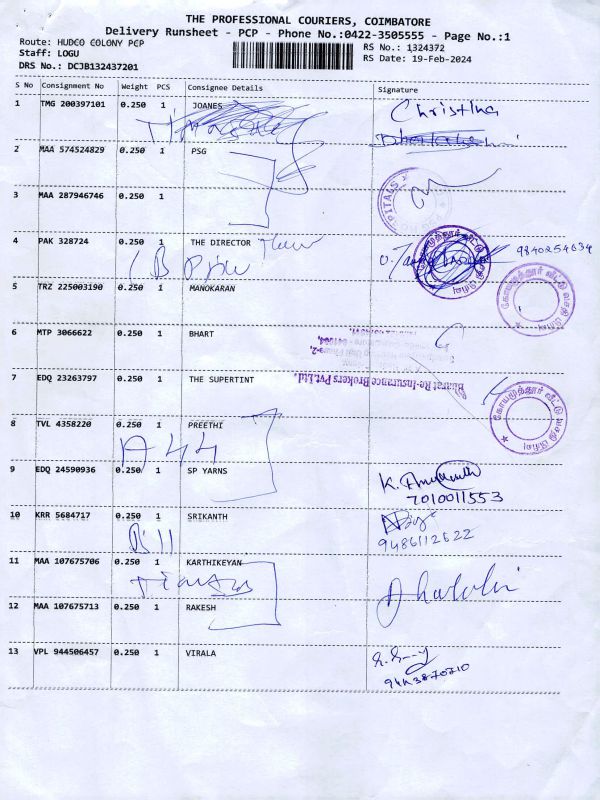 THE PROFESSIONAL COURIERS, COIMBATORE
Delivery Runsheet - PCP - Phone No.:0422-3505555 - Page No.:1
Route: HUDCO COLONY PCP
RS No.: 1324372
Staff: LOGU
RS Date: 19-Feb-2024
DRS No.: DCJB132437201
S No Consignment No Weight PCS Consignee Details Signature
1 TMG 200397101 0.250 1 JOANES Christina
2 MAA 574524829 0.250 1 PSG
3 MAA 287946746 0.250 1
4 PAK 328724 0.250 1 THE DIRECTOR
5 TRZ 225003190 0.250 1 MANOKARAN
6 MTP 3066622 0.250 1 BHART
Bharat Re-Insurance Brokers Pvt.Ltd.
7 EDQ 23263797 0.250 1 THE SUPERTINT
8 TVL 4358220 0.250 1 PREETHI
A 44
9 EDQ 24590936 0.250 1 SP YARNS
7010011553
10 KRR 5684717 0.250 1 SRIKANTH
9486112622
11 MAA 107675706 0.250 1 KARTHIKEYAN
12 MAA 107675713 0.250 1 RAKESH
13 VPL 944506457 0.250 1 VIRALA